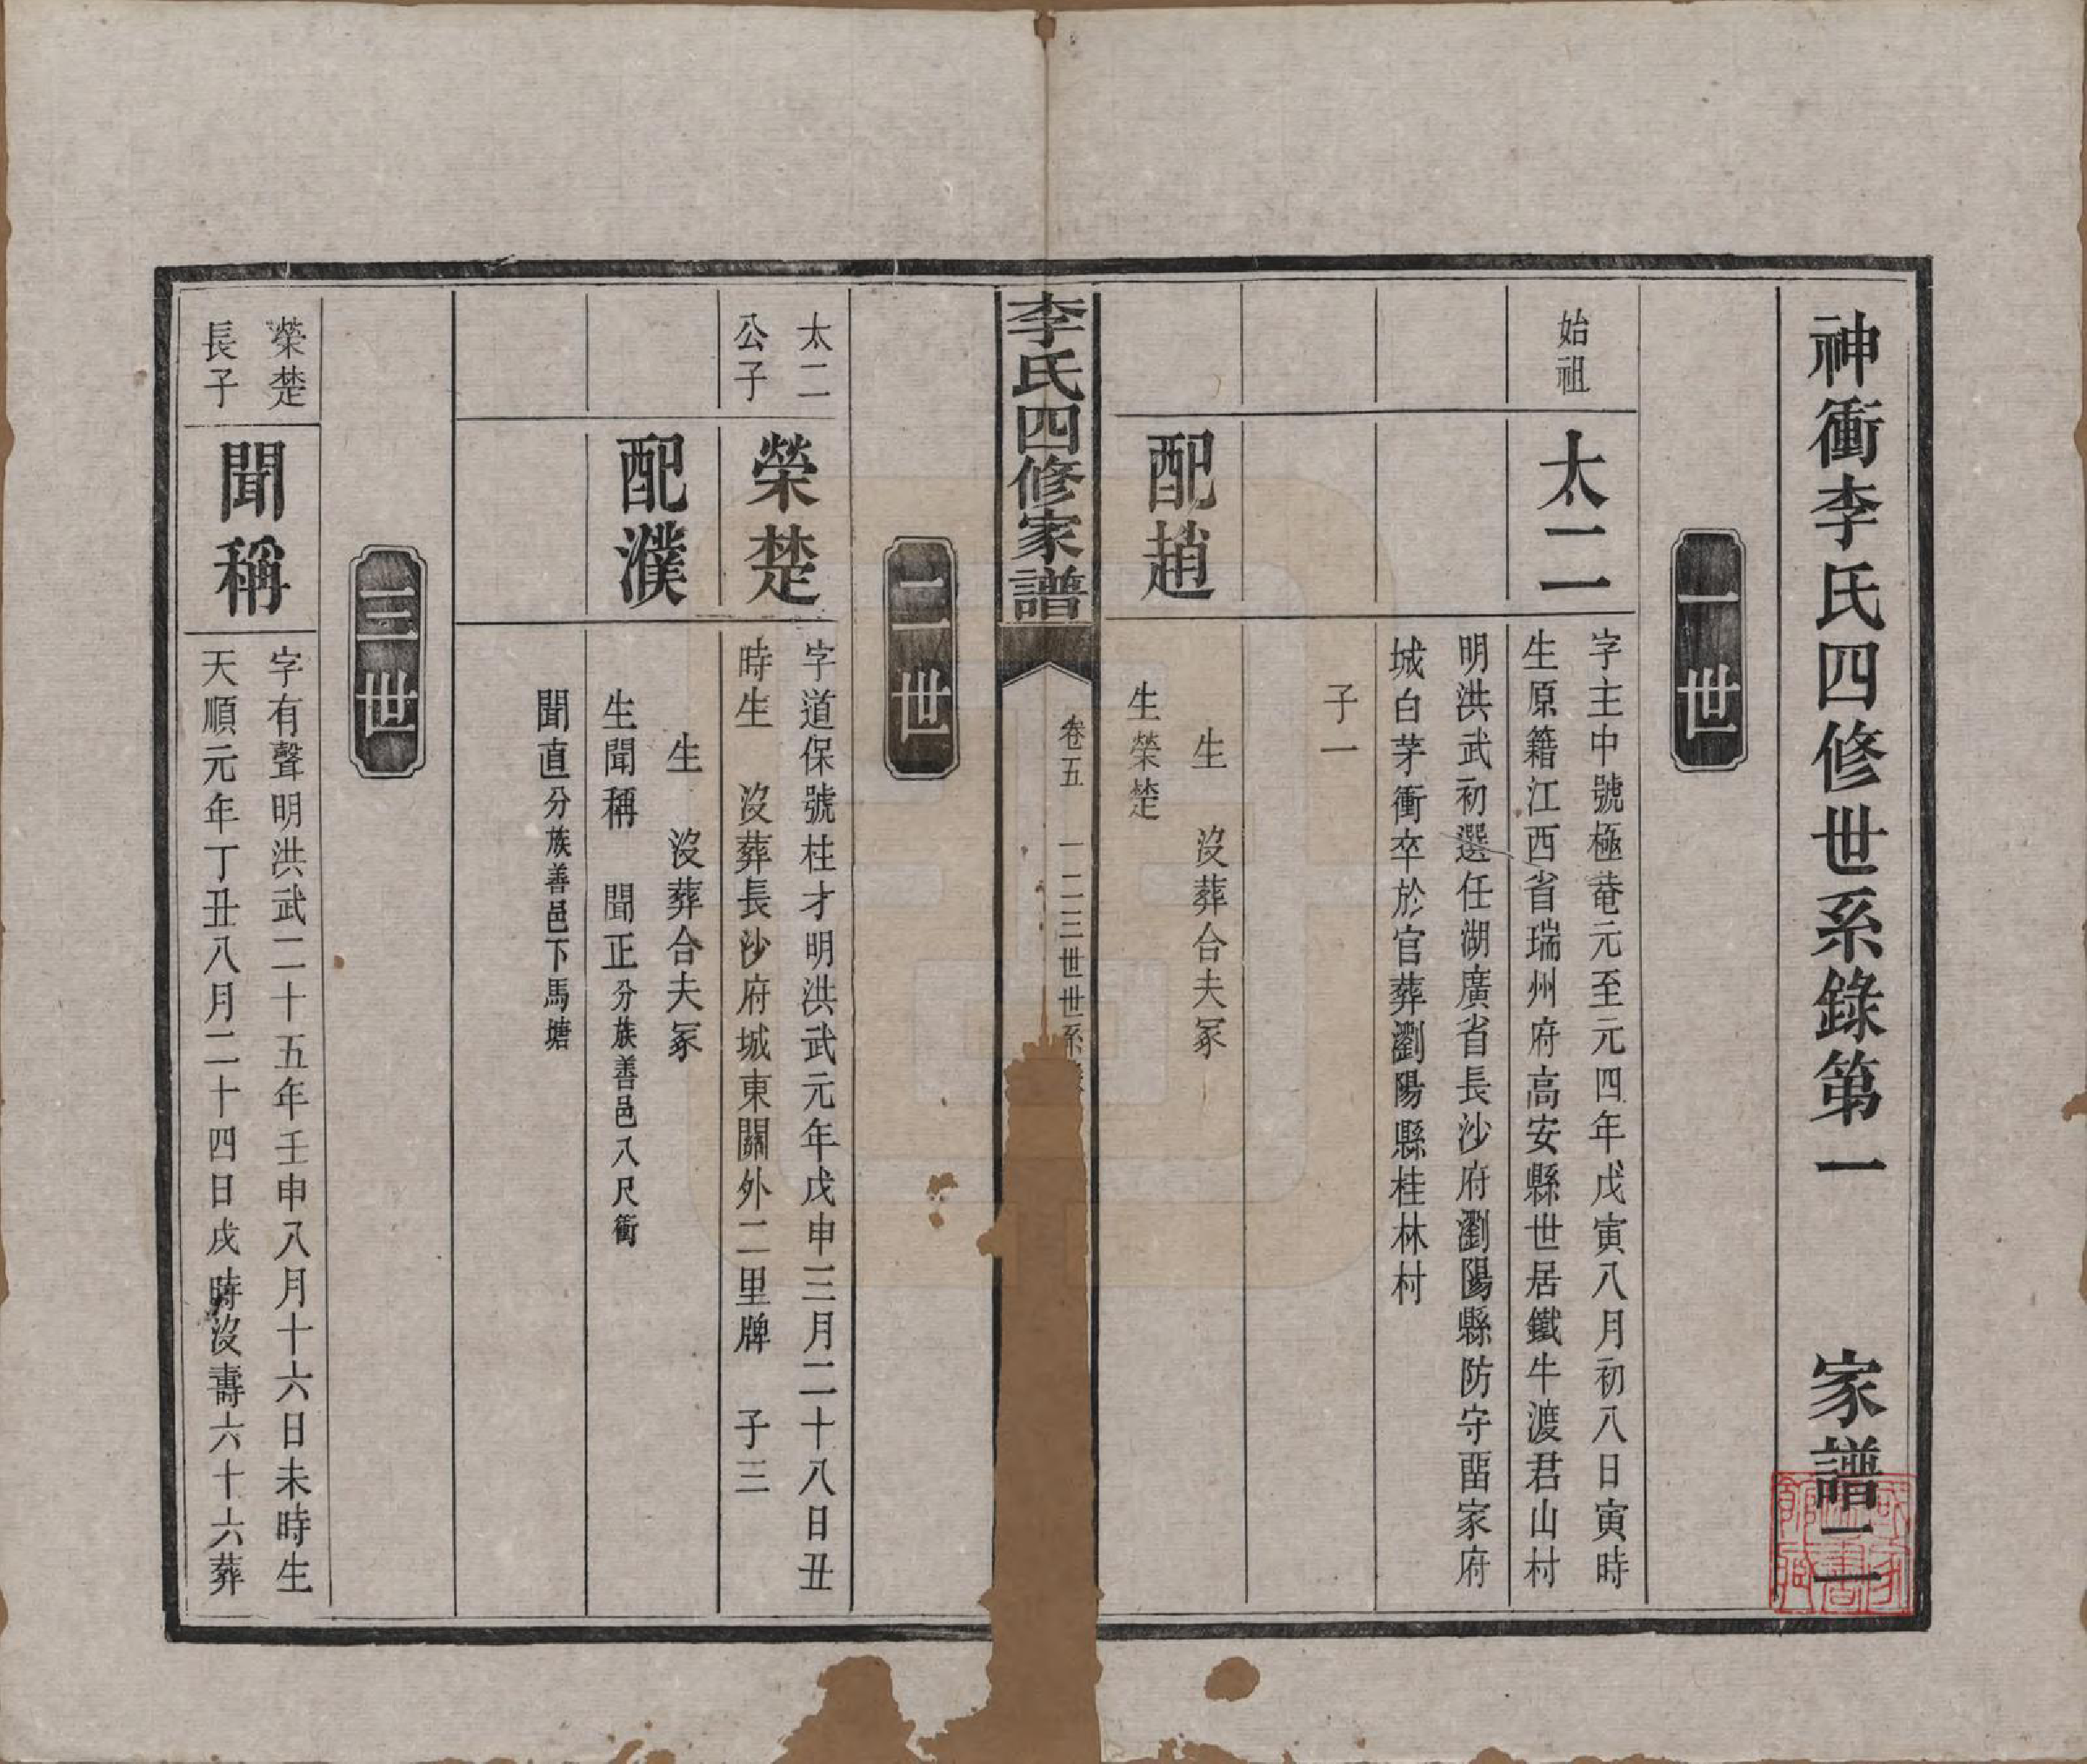 神衝李氏四修世系錄第一　家譜二
一世
始祖
太二
字主中號極菴元至元四年戊寅八月初八日寅時
生原籍江西省瑞州府高安縣世居鐵牛渡君山村
明洪武初選任湖廣省長沙府瀏陽縣防守畱家府
城白茅衝卒於官葬瀏陽縣桂林村
子一
配趙
生　沒葬合夫冢
生榮楚
李氏四修家譜
卷五　一二三世世系
二世
太二
公子
榮楚
字道保號柱才明洪武元年戊申三月二十八日丑
時生　沒葬長沙府城東關外二里牌　子三
配濮
生　沒葬合夫冢
生聞稱　聞正分族善邑八尺衝
聞直分族善邑下馬塘
三世
榮楚
長子
聞稱
字有聲明洪武二十五年壬申八月十六日未時生
天順元年丁丑八月二十四日戌時沒壽六十六葬